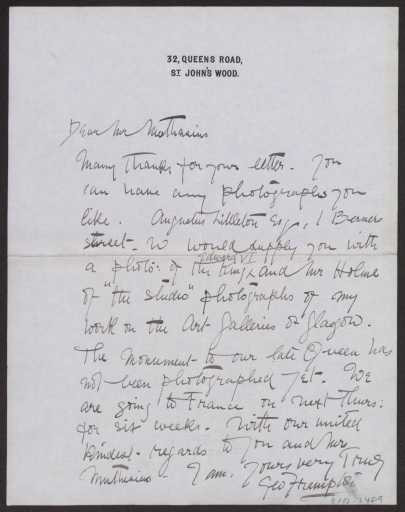 32, QUEENS ROAD,
ST. JOHN'S WOOD.
Dear Mr Muthesius
Many thanks for your letter. You
can have any photographs you
like. Augustus Littleton Esq, 1 Berner
street. W would supply you with
a photo: of the King, Edward VII and Mr Holme
of "the studio" photographs of my
work on the Art Galleries of Glasgow.
The Monument to our late Queen has
not been photographed yet. We
are going to France on next Thurs:
for six weeks. With our united
kindest regards to you and Mrs
Muthesius. I am. Yours very Truly
Geo Frampton